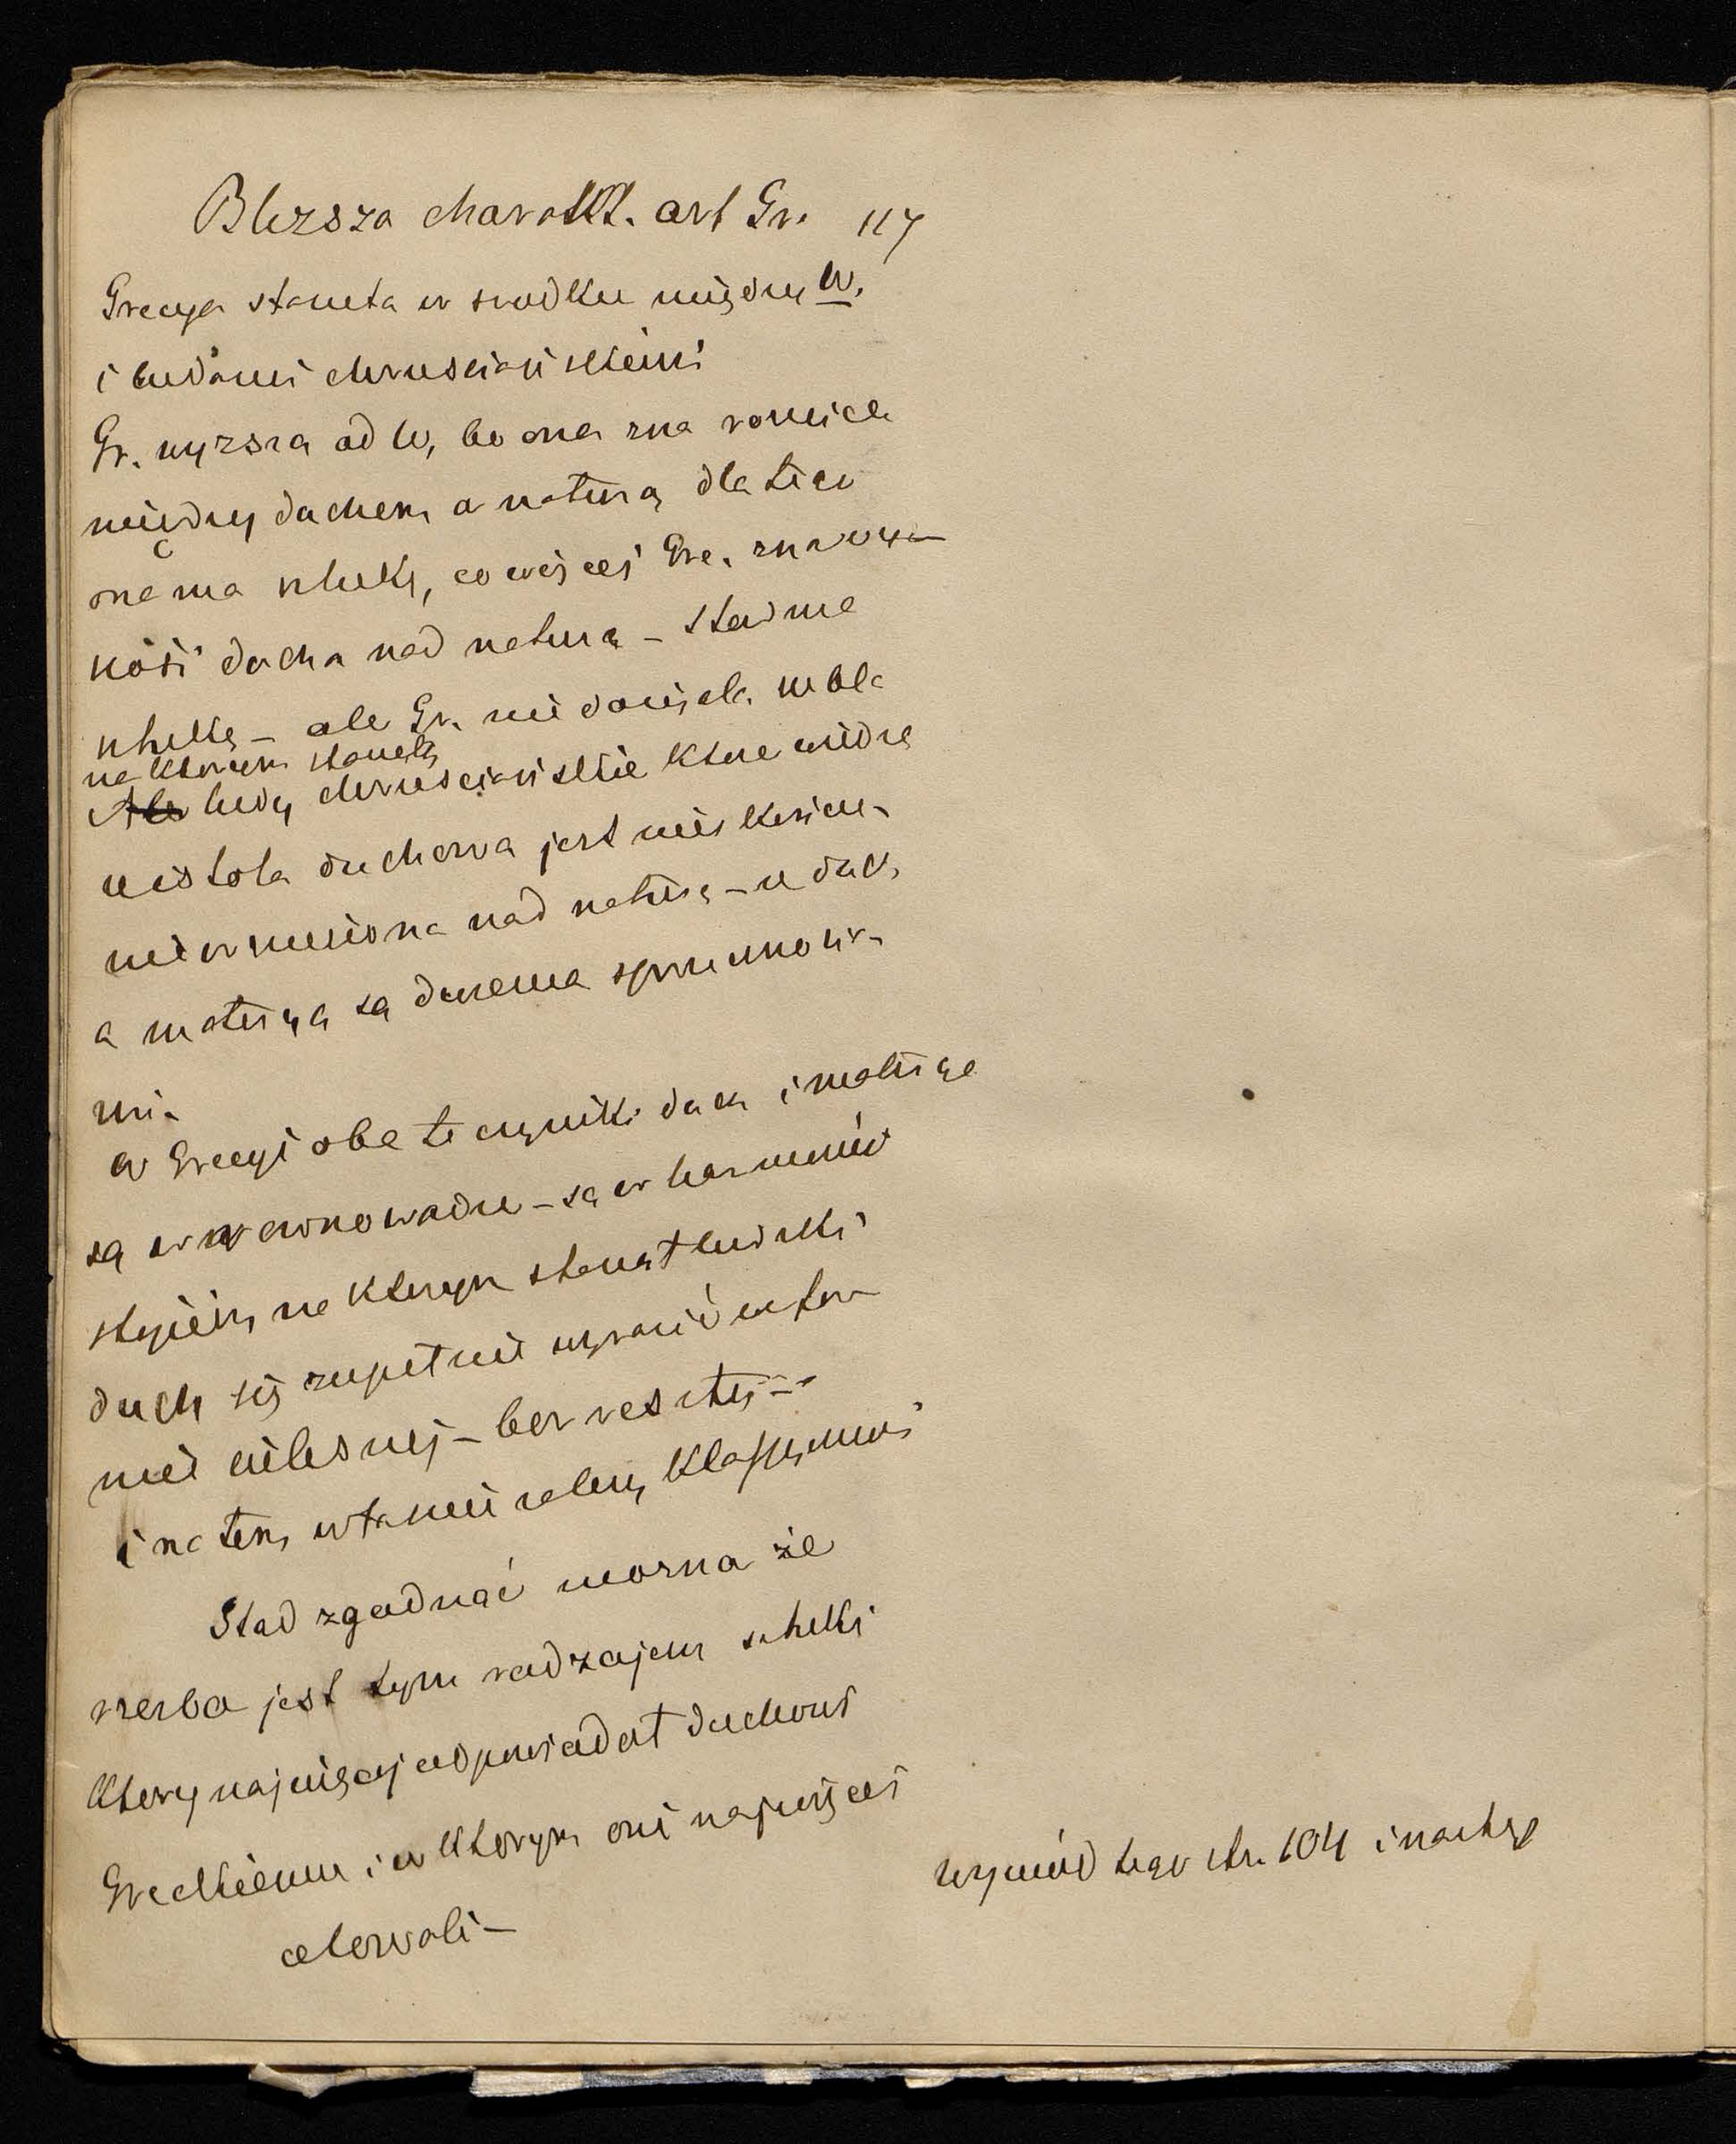 Bliższa charakt. art Gr. 117
Grecya stanęła w srodku między W.
i ludami chrześciańskiemi
Gr. wyzsza od W, bo ona zna roznice
między duchem a naturą dla tego
ona ma sztukę, co więcej Gre. zna wyz
szość ducha nad naturą – stad ma
sztukę – ale Gr. nie doszła w
na ktorem stanęły
Ale ludy chrześciańskie ktore widzą
istota duchowa jest nieskończe
nie wzniesiona nad naturę – ze duch
a materya są dwiema sprzecznościa
mi.
W Grecyi obe te czynniki duch i materya
są w rownowadze – są w harmonii
stopien, na ktorym stanął ludzki
duch się zupełnie wyraził w for
mie cielesnej – bez reszty –
i na tem własnie zalezy klassyczność
Stad zgadnąć mozna że
rzezba jest tym rodzajem sztuki
ktory najwięcej odpowiadał duchowi
Greckiemu i w ktorym oni najwięcej
celowali –
wywód tego str. 104 i następ